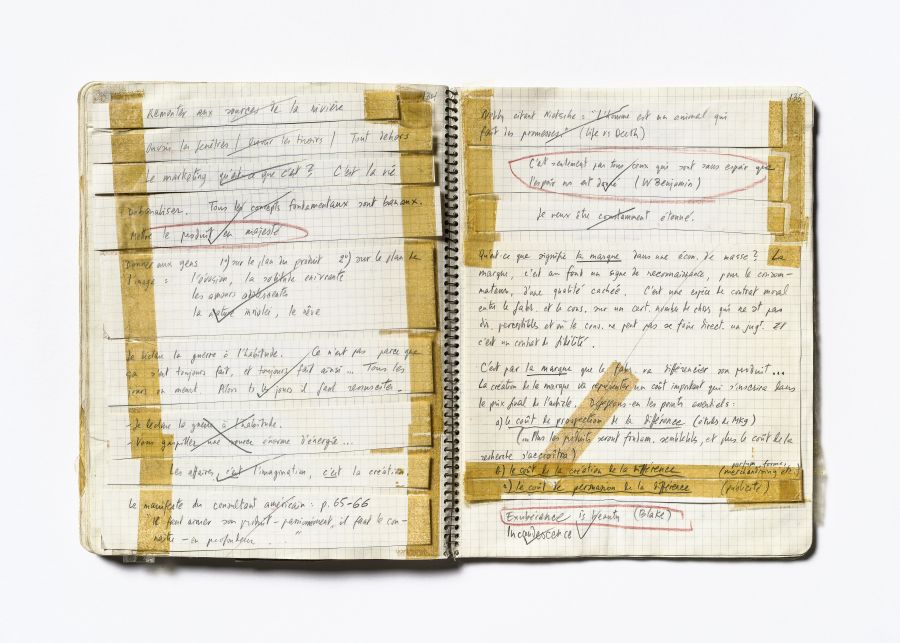 134
Remonter aux sources de la rivière
Ouvrir les fenêtres / ouvrir les tiroirs / Tout dehors
Le marketing qu'est-ce que c'est ? C'est la vie
Débanaliser. Tous les concepts fondamentaux sont banaux.
Mettre le produit en majesté
Donner aux gens 1°) sur le plan du produit 2°) sur le plan de
l'image : l'évasion, la solitude enivrante
les amours adolescents
la nature inviolée, le rêve
Je déclare la guerre à l'habitude. Ce n'est pas parce que
ça s'est toujours fait, et toujours fait ainsi ... Tous les
jours on meurt. Alors ts les jours il faut ressusciter.
- Je déclare la guerre à l'habitude.
- Vous gaspillez une source énorme d'énergie ...
Les affaires, c'est l'imagination, c'est la création.
Le manifeste du consultant américain : p. 65-66
"Il faut aimer son produit - passionnément, il faut le con-
naître - en profondeur . "
135
citant Nietsche : "l'homme est un animal qui
fait des promesses" (Life vs Death)
C'est seulement par tous ceux qui sont sans espoir que
l'espoir ns est donné (W Benjamin)
Je veux être constamment étonné.
Qu'est-ce que signifie la marque dans une écon. de masse ? La
marque, c'est au fond un signe de reconnaissance, pour le consom-
mateur, d'une qualité cachée. C'est une espèce de contrat moral
entre le fabr. et le cons. sur un cert. nombre de choses qui ne st pas
dir. perceptibles et où le cons. ne peut pas se faire direct. un jugt. Et
c'est un contrat de fidélité.
C'est par la marque que le fabr. va différencier son produit ...
La création de la marque va représenter un coût important qui s'inscrira dans
le prix final de l'article. Dégageons-en les points essentiels :
a) le coût de prospection de la différence (études de Mktg)
(+ les produits seront fondam. semblables, et plus le coût de la
recherche s'accroîtra)
parfum, forme,
b) le coût de la création de la différence (merchandising etc.)
c) le coût de permanence de la différence (publicité)
Exuberance is beauty (Blake)
Incandescence